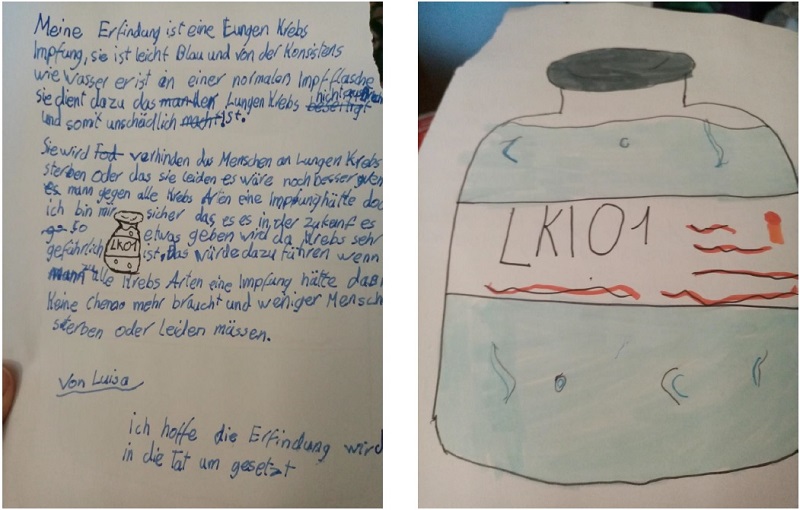 Meine Erfindung ist eine Lungen Krebs
Impfung, sie ist leicht Blau und von der Konsistens
wie Wasser er ist in einer normalen Impf flasche
sie dient dazu das man den Lungen Krebs nicht
beseitigt
und somit unschädlich macht ist.
Sie wird verhinden das Menschen an Lungen Krebs
sterben oder das sie leiden es wäre noch besser
es mann gegen alle Krebs Arten eine Impfung hätte
ich bin mir sicher das es es in der zukunft es
so etwas geben wird da Krebs sehr
gefährlich ist, Das würde dazu führen wenn
mann alle Krebs Arten eine Impfung hätte das
Keine chemo mehr braucht und weniger Mensch
sterben oder Leiden müssen.
LK101
von Luisa
ich hoffe die Erfindung wird
in die Tat um gesetzt
LK101